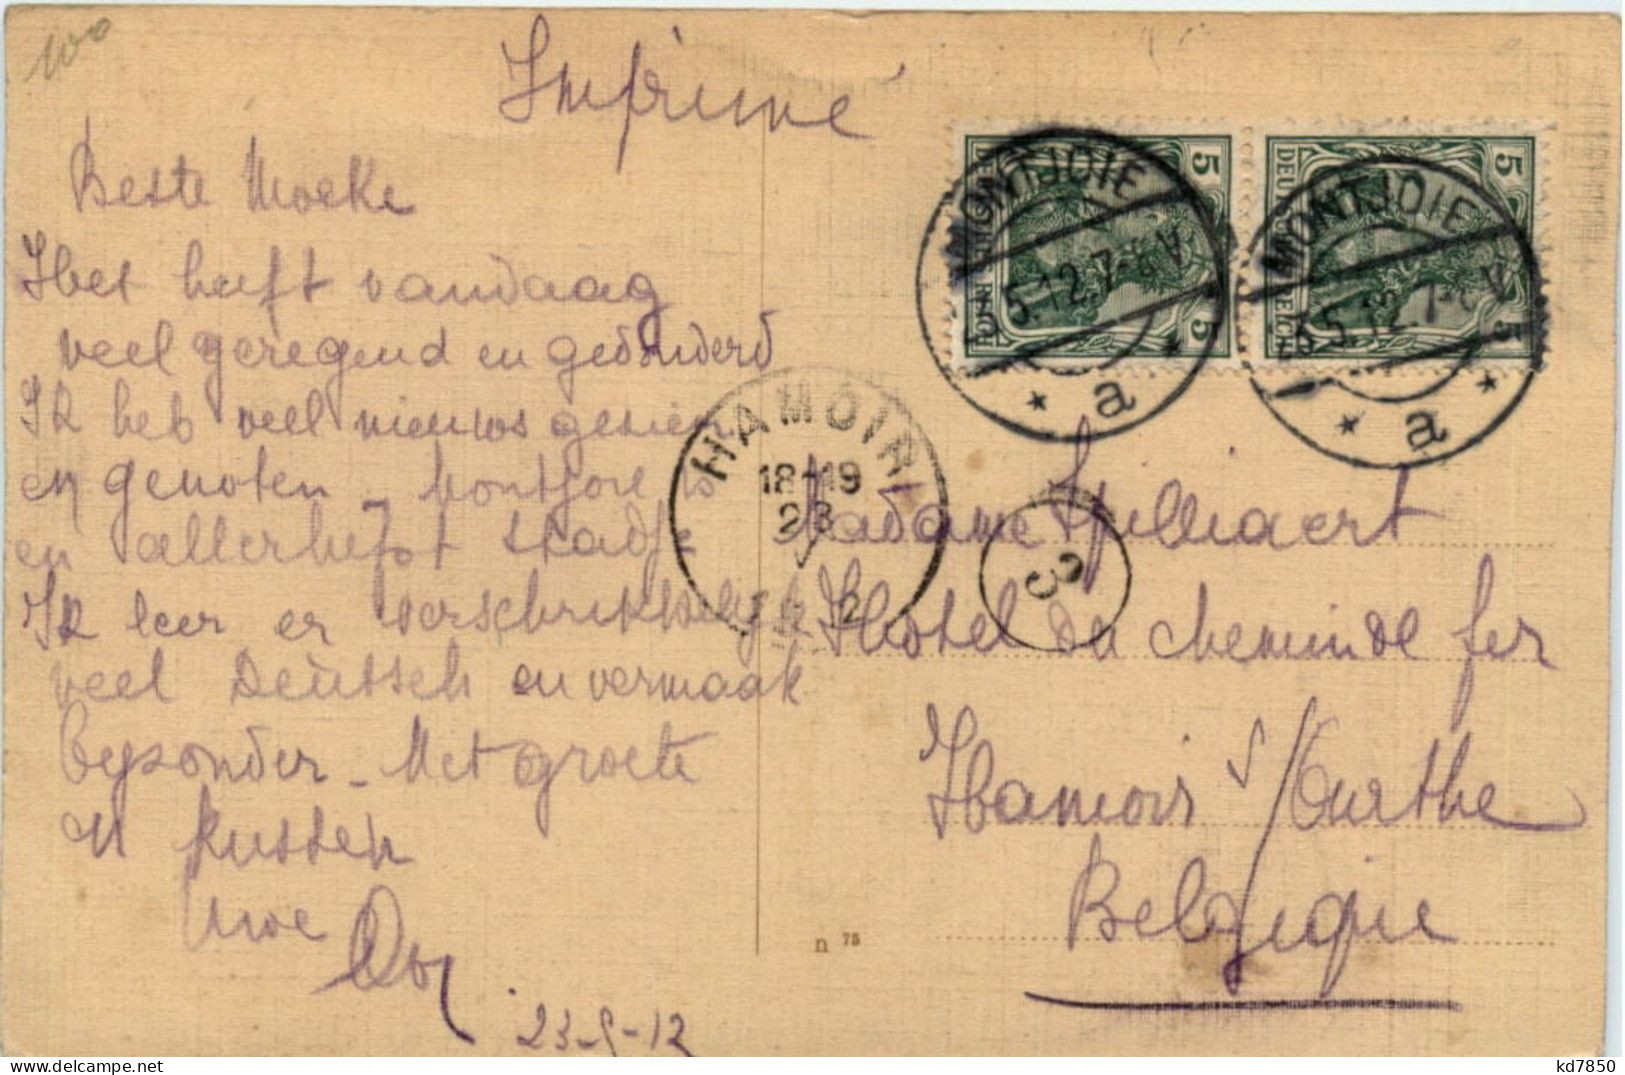 100
Imprimé
Beste Moeke
Het heeft vandaag
veel geregend en gedonderd
Ik heb veel nieuws gezien
en genoten - Montjoie is
en allerliefst stadje
Ik leer er verschrikkelijk
veel Deutsch en vermaak
byzonder - Met groete
en kussen
Uwe
23-5-12
DEUTSCHES REICH 5 5
DEUTSCHES REICH 5 5
MONTJOIE
5.12.7-8V
* a *
MONTJOIE
5.12.7-8V
* a *
HAMOIR
18-19
23
V
3
Madame Spilliaert
Hotel du chemin de fer
Hamoir s/Ourthe
Belgique
n 75
kd7850